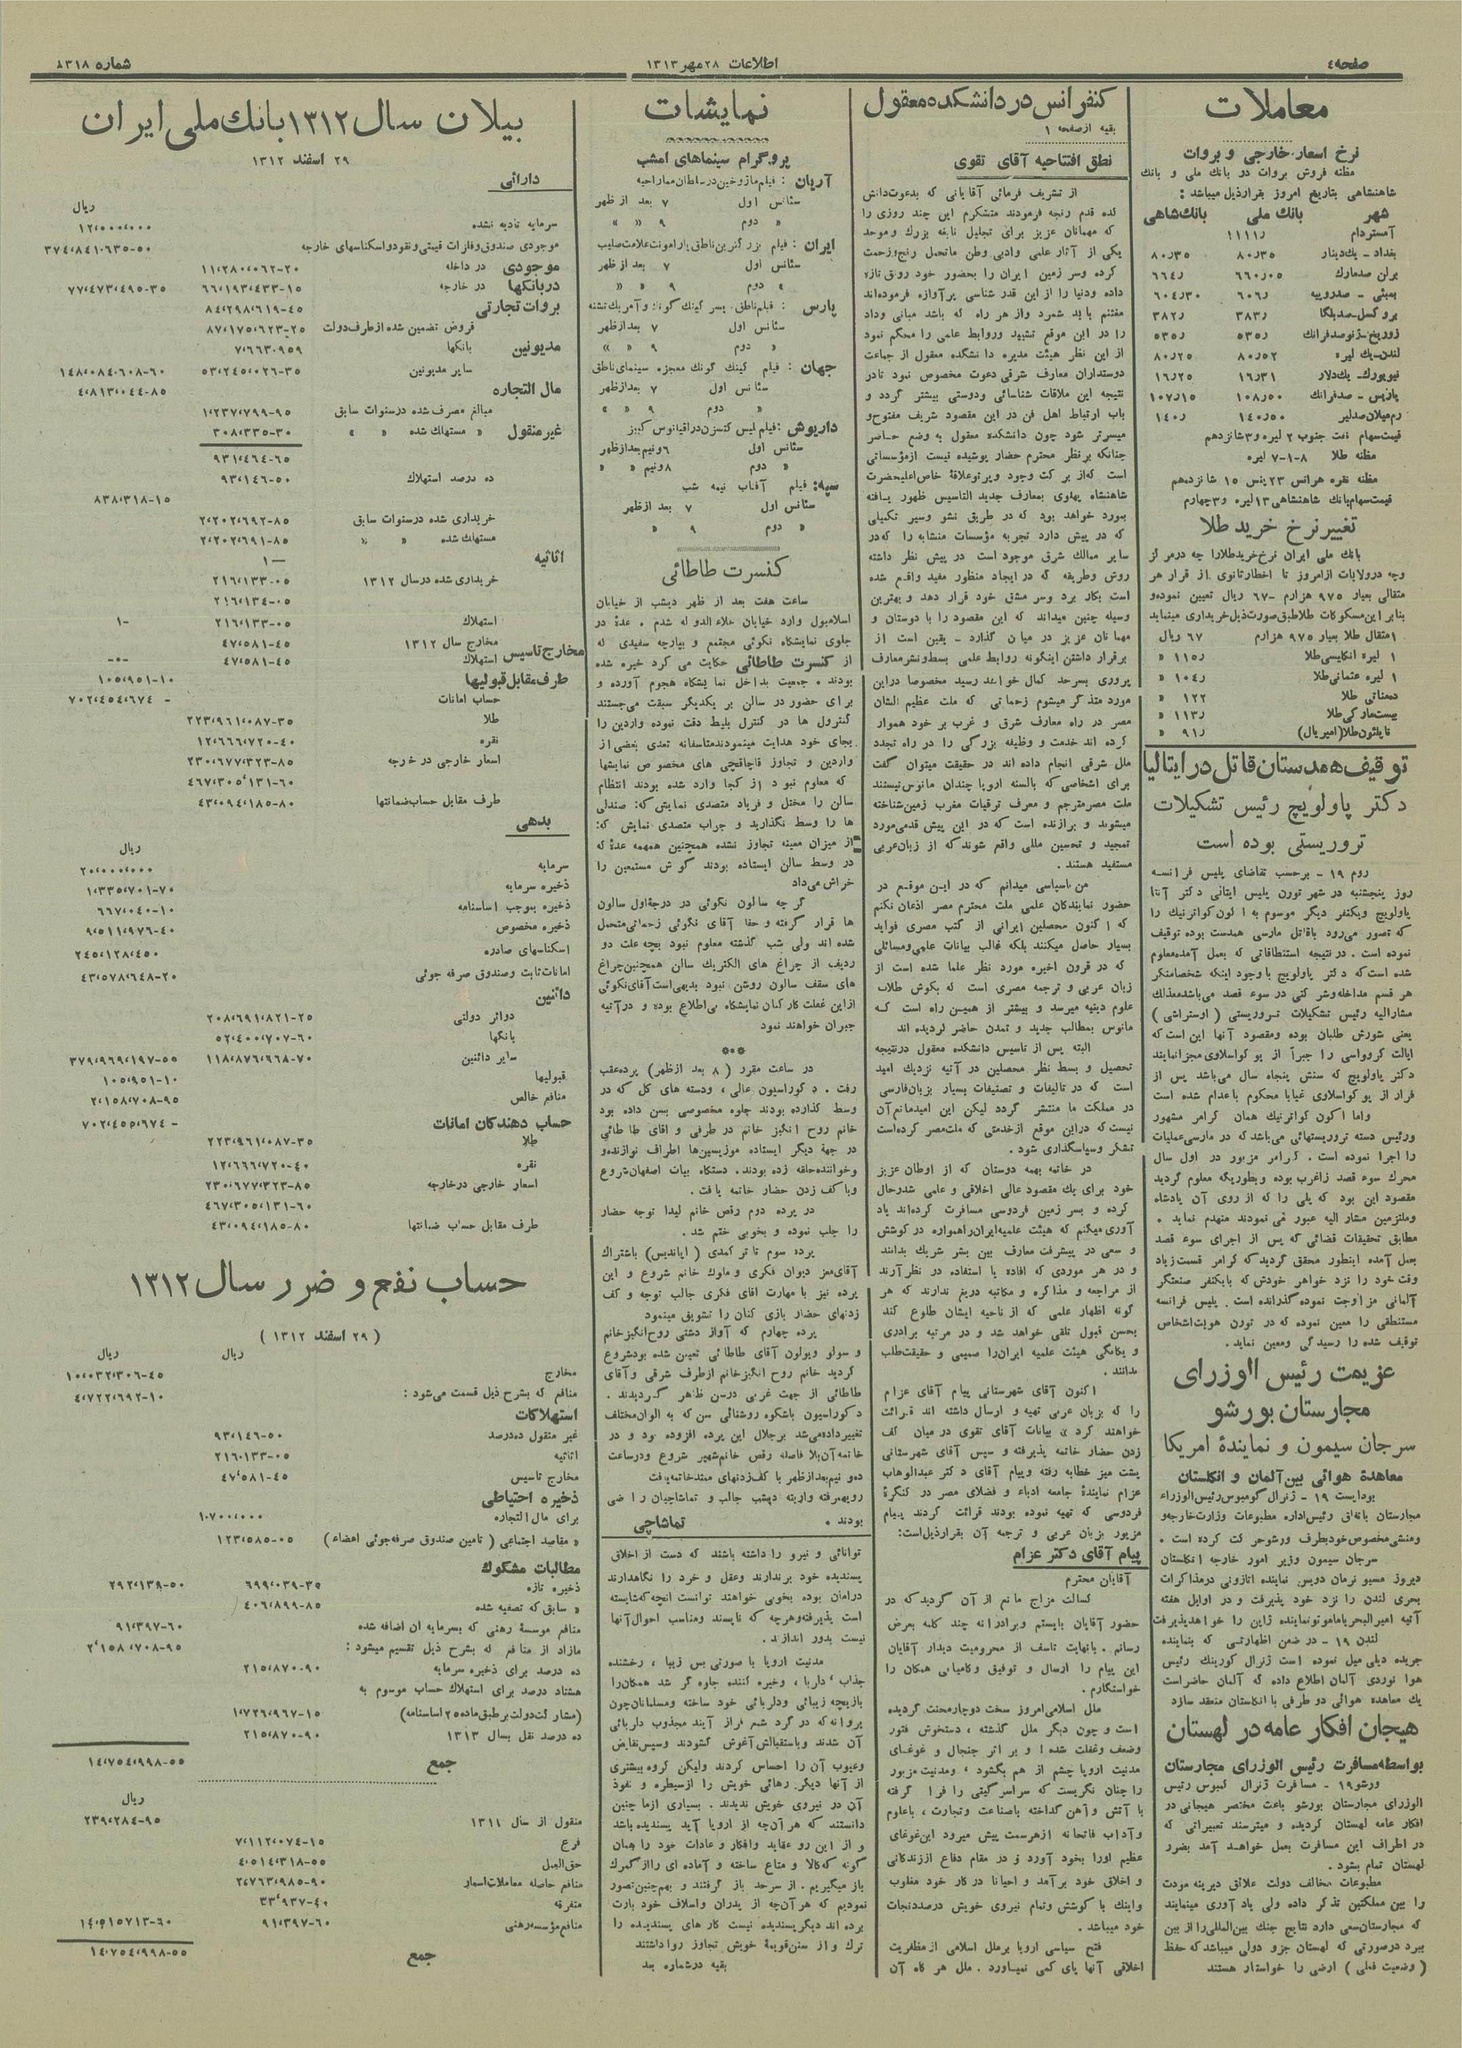 صفحه ٤
اطلاعات ۲۸ مهر ۱۳۱۳
معاملات
نرخ اسعار خارجی و بروات
مظنه فروش بروات در بانک ملی و بانک
شاهنشاهی بتاریخ امروز بقرار ذیل میباشد :
شهر بانک ملی بانک شاهی
آمستردام ۱۱۱۱ر
بغداد - یک دینار ۸۰ر۳۵ ۸۰ر۳۵
برلن صدمارک ۶۶۰ر۰۵ ۶۶۴ر
بمبئی - صدروپیه ۶۰۶ر ۶۰۴ر۳۰
بروکسل - صدبلگا ۳۸۳ر ۳۸۲ر
زوریخ - ژنو صد فرانک ۵۳۵ر ۵۳۵ر
لندن - یک لیره ۸۰ر۵۲ ۸۰ر۲۵
نیویورک - یک دلار ۱۶ر۳۱ ۱۶ر۲۵
پاریس - صد فرانک ۱۰۸ر۵۰ ۱۰۷ر۱۵
رم میلان صد لیر ۱۴۰ر۵۰ ۱۴۰ر
قیمت سهام نفت جنوب ۲ لیره و ۳ شانزدهم
مظنه طلا ۸-۱-۷ لیره
مظنه نقره هر انس ۲۳ پنس ۱۵ شانزدهم
قیمت سهام بانک شاهنشاهی ۱۳ لیره و ۳ چهارم
تغییر نرخ خرید طلا
بانک ملی ایران نرخ خرید طلا را چه در مرکز
وچه در ولایات از امروز تا اخطار ثانوی از قرار هر
مثقالی بعیار ۹۷۵ هزارم -۶۷ ریال تعیین نموده و
بنابر این مسکوکات طلا طبق صورت ذیل خریداری مینماید
۱ مثقال طلا بعیار ۹۷۵ هزارم ۶۷ ریال
۱ لیره انگلیسی طلا ۱۱۵ر »
۱ لیره عثمانی طلا ۱۰۴ر »
ده مناتی طلا ۱۲۲ »
بیست مارکی طلا ۱۱۳ر »
ناپلئون طلا (امپریال) ۹۱ر »
توقیف همدستان قاتل در ایتالیا
دکتر پاولویچ رئیس تشکیلات
تروریستی بوده است
روم ۱۹ - برحسب تقاضای پلیس فرانسه
روز پنجشنبه در شهر تورن پلیس ایتالی دکتر آنتا
پاولویچ ویکنفر دیگر موسوم به اگون کواترنیک را
که تصور می‌رود باقاتل مارسی همدست بوده توقیف
نموده است . در نتیجه استنطاقاتی که بعمل آمده معلوم
شده است که دکتر پاولویچ با وجود اینکه شخصا منکر
هر قسم مداخله و شرکتی در سوء قصد می‌باشد معذلک
مشارالیه رئیس تشکیلات تروریستی ( اوستراشی )
یعنی شورش طلبان بوده و مقصود آنها این است که
ایالت کرواسی را جبراً از یوگواسلاوی مجزا نمایند
دکتر پاولویچ که سنش پنجاه سال می‌باشد پس از
فرار از یوگواسلاوی غیابا محکوم باعدام شده است
واما اگون کواترنیک همان کرامر مشهور
ورئیس دسته تروریستهائی می‌باشد که در مارسی عملیات
را اجرا نموده است . کرامر مزبور در اول سال
محرک سوء قصد زاغرب بوده و بطوریکه معلوم گردید
مقصود این بود که پلی را که از روی آن پادشاه
وملتزمین مشار الیه عبور می نمودند منهدم نماید .
مطابق تحقیقات قضائی که پس از اجرای سوء قصد
بعمل آمده اینطور محقق گردید که کرامر قسمت زیاد
وقت خود را نزد خواهر خودش که بایکنفر صنعتگر
آلمانی مزاوجت نموده گذرانده است . پلیس فرانسه
مستنطقی را معین نموده که در تورن هویت اشخاص
توقیف شده را رسیدگی ومعین نماید .
عزیمت رئیس الوزرای
مجارستان بورشو
سرجان سیمون و نمایندهٔ امریکا
معاهدهٔ هوائی بین آلمان و انگلستان
بوداپست ۱۹ - ژنرال گومبوس رئیس الوزراء
مجارستان باتفاق رئیس اداره مطبوعات وزارت خارجه و
ومنشی مخصوص خود بطرف ورشو حرکت کرده است .
سرجان سیمون وزیر امور خارجه انگلستان
دیروز مسیو نرمان دویس نماینده اتازونی در مذاکرات
بحری لندن را نزد خود پذیرفت و در اوایل هفته
آتیه امیرالبحر یاماموتو نماینده ژاپن را خواهد پذیرفت
لندن ۱۹ - در ضمن اظهاراتی که بنماینده
جریده دیلی میل نموده است ژنرال کورینک رئیس
هوا نوردی آلمان اطلاع داده که آلمان حاضر است
یک معاهده هوائی دو طرفی با انگلستان منعقد سازد
هیجان افکار عامه در لهستان
بواسطه مسافرت رئیس الوزرای مجارستان
ورشو ۱۹ - مسافرت ژنرال گمبوس رئیس
الوزرای مجارستان بورشو باعث مختصر هیجانی در
افکار عامه لهستان گردیده و میترسند تعبیراتی که
در اطراف این مسافرت بعمل خواهد آمد بضرر
لهستان تمام بشود .
مطبوعات مخالف دولت علائق دیرینه مودت
را بین مملکتین تذکر داده ولی یاد آوری مینمایند
که مجارستان سعی دارد نتایج جنگ بین المللی را از بین
ببرد در صورتی که لهستان جزو دولی میباشد که حفظ
( وضعیت فعلی ) ارضی را خواستار هستند
کنفرانس در دانشکده معقول
بقیه از صفحه ۱
نطق افتتاحیه آقای تقوی
از تشریف فرمائی آقایانی که بدعوت دانش
کده قدم رنجه فرمودند متشکرم این چند روزی را
که مهمانان عزیز برای تجلیل نابغه بزرگ و موحد
یکی از آثار علمی وادبی وطن ماتحمل رنج وزحمت
کرده وسر زمین ایران را بحضور خود رونق تازه
داده ودنیا را از این قدر شناسی پرآوازه فرموده‌اند
مغتنم باید شمرد واز هر راه که باشد مبانی وداد
را در این موقع تشیید وروابط علمی را محکم نمود
از این نظر هیئت مدیره دانشکده معقول از جماعت
دوستداران معارف شرقی دعوت مخصوص نمود تا در
نتیجه این ملاقات شناسائی ودوستی بیشتر گردد و
باب ارتباط اهل فن در این مقصود شریف مفتوح و
میسرتر شود چون دانشکده معقول به وضع حاضر
چنانکه برنظر محترم حضار پوشیده نیست از مؤسساتی
است که از برکت وجود وپرتو علاقهٔ خاص اعلیحضرت
شاهنشاه پهلوی بمعارف جدید التاسیس ظهور یافته
بمورد خواهد بود که در طریق نشو وسیر تکمیلی
که در پیش دارد تجربه مؤسسات متشابه را که در
سایر ممالک شرق موجود است در پیش نظر داشته
روش وطریقه که در ایجاد منظور مفید واقع شده
است بکار برد وسر مشق خود قرار دهد و بهترین
وسیله چنین میداند که این مقصود را با دوستان و
مهمانان عزیز در میان گذارد - یقین است از
برقرار داشتن اینگونه روابط علمی بسط ونشر معارف
پروری بسرحد کمال خواهد رسید مخصوصا در این
مورد متذکر میشوم زحماتی که ملت عظیم الشان
مصر در راه معارف شرق و غرب بر خود هموار
کرده اند خدمت و وظیفه بزرگی را در راه تجدد
ملل شرقی انجام داده اند در حقیقت میتوان گفت
برای اشخاصی که بالسنه اروپا چندان مانوس نیستند
ملت مصر مترجم و معرف ترقیات مغرب زمین شناخته
میشوند و برازنده است که در این پیش قدمی مورد
تمجید و تحسین مللی واقع شوند که از زبان عربی
مستفید هستند .
من سپاسی میدانم که در این موقع در
حضور نمایندگان علمی ملت محترم مصر اذعان نکنم
که اکنون محصلین ایرانی از کتب مصری فواید
بسیار حاصل میکنند بلکه غالب بیانات علمی ومسائلی
که در قرون اخیره مورد نظر علما شده است از
زبان عربی و ترجمه مصری است که بگوش طلاب
علوم دینیه میرسد و بیشتر از همین راه است که
مانوس بمطالب جدید و تمدن حاضر گردیده اند
البته پس از تاسیس دانشکده معقول در نتیجه
تحصیل و بسط نظر محصلین در آتیه نزدیک امید
است که در تالیفات و تصنیفات بسیار بزبان فارسی
در مملکت ما منتشر گردد لیکن این امید مانع آن
نیست که در این موقع از خدمتی که ملت مصر کرده است
تشکر وسپاسگذاری شود .
در خاتمه بهمه دوستان که از اوطان عزیز
خود برای یک مقصود عالی اخلاقی و علمی شد رحال
کرده و بسر زمین فردوسی مسافرت کرده‌اند یاد
آوری میکنم که هیئت علمیه ایران را همواره در کوشش
و سعی در پیشرفت معارف بین بشر شریک بدانند
و در هر موردی که افاده یا استفاده در نظر آرند
از مراجعه و مذاکره و مکاتبه دریغ ندارند که هر
گونه اظهار علمی که از ناحیه ایشان طلوع کند
بحسن قبول تلقی خواهد شد و در مرتبه برادری
و یگانگی هیئت علمیه ایران را صمیمی و حقیقت طلب
بدانند .
اکنون آقای شهرستانی پیام آقای عزام
را که بزبان عربی تهیه و ارسال داشته اند قرائت
خواهند کرد » بیانات آقای تقوی در میان کف
زدن حضار خاتمه پذیرفته و سپس آقای شهرستانی
پشت میز خطابه رفته وپیام آقای دکتر عبدالوهاب
عزام نمایندهٔ جامعه ادباء و فضلای مصر در کنگرهٔ
فردوسی که تهیه نموده بودند قرائت کردند پیام
مزبور بزبان عربی و ترجمه آن بقرار ذیل است:
پیام آقای دکتر عزام
آقایان محترم
کسالت مزاج مانع از آن گردید که در
حضور آقایان بایستم وبرادرانه چند کلمه بعرض
رسانم . بانهایت تاسف از محرومیت دیدار آقایان
این پیام را ارسال و توفیق وکامیابی همگان را
خواستگارم .
ملل اسلامی امروز سخت دوچار محنت گردیده
است و چون دیگر ملل گذشته ، دستخوش فتور
وضعف وغفلت شده ! و بر اثر جنجال و غوغای
مدنیت اروپا چشم از هم بگشود ، ومدنیت مزبور
را چنان نگریست که سراسر گیتی را فرا گرفته
با آتش وآهن گداخته باصناعت وتجارت ، باعلوم
وآداب فاتحانه از هرسمت پیش میرود این غوغای
عظیم اورا بخود آورد و در مقام دفاع از زندگانی
و اخلاق خود برآمد و احیانا در کار خود مغلوب
واینک با کوشش وتمام نیروی خویش درصدد نجات
خود میباشد .
فتح سیاسی اروپا برملل اسلامی از مظفریت
اخلاقی آنها پای کمی نمیآورد . ملل هر گاه آن
نمایشات
پروگرام سینماهای امشب
سئانس اول ۷ بعد از ظهر
» دوم ۹ » »
سئانس اول ۷ بعد از ظهر
» دوم ۹ » »
سئانس اول ۷ بعد از ظهر
» دوم ۹ » »
جهان : فیلم کینگ کونگ معجزه سینمای ناطق
سئانس اول ۷ بعد از ظهر
» دوم ۹ » »
سئانس اول ۶ ونیم بعد از ظهر
» دوم ۸ ونیم » »
سپه: فیلم آفتاب نیمه شب
سئانس اول ۷ بعد از ظهر
» دوم ۹ »
کنسرت طاطائی
ساعت هفت بعد از ظهر دیشب از خیابان
اسلامبول وارد خیابان علاء الدوله شدم . عدهٔ در
جلوی نمایشگاه نکوئی مجتمع و بپارچه سفیدی که
از کنسرت طاطائی حکایت می کرد خیره شده
بودند . جمعیت بداخل نمایشگاه هجوم آورده و
برای حضور در سالن بر یکدیگر سبقت می‌جستند
کنترول ها در کنترل بلیط دقت نموده واردین را
بجای خود هدایت مینمودند متاسفانه تعدی بعضی از
واردین و تجاوز قاچاقچی های مخصوص نمایشها
که معلوم نبود از کجا وارد شده بودند انتظام
سالن را مختل و فریاد متصدی نمایش که: صندلی
ها را وسط نگذارید و جواب متصدی نمایش که:
از میزان معینه تجاوز نشده همچنین همهمه عدهٔ که
در وسط سالن ایستاده بودند گوش مستمعین را
خراش می‌داد
گر چه سالون نکوئی در درجهٔ اول سالون
ها قرار گرفته و حقا آقای نکوئی زحماتی متحمل
شده اند ولی شب گذشته معلوم نبود بچه علت دو
ردیف از چراغ های الکتریک سالن همچنین چراغ
های سقف سالون روشن نبود بدیهی است آقای نکوئی
از این غفلت کارکنان نمایشگاه بی‌اطلاع بوده و در آتیه
جبران خواهند نمود
***
در ساعت مقرر ( ۸ بعد از ظهر) پرده عقب
رفت . دکوراسیون عالی ، ودسته های گل که در
وسط گذارده بودند جلوه مخصوصی بسن داده بود
خانم روح انگیز خانم در طرفی و اقای طاطائی
در جهة دیگر ایستاده موزیسین‌ها اطراف نوازنده و
وخواننده حلقه زده بودند . دستگاه بیات اصفهان شروع
وبا کف زدن حضار خاتمه یافت .
در پرده دوم رقص خانم لیدا توجه حضار
را جلب نموده و بخوبی ختم شد .
آقای معز دیوان فکری و ملوک خانم شروع و این
پرده نیز با مهارت اقای فکری جالب توجه و کف
زدنهای حضار بازی کنان را تشویق مینمود
پرده چهارم که آواز دشتی روح انگیز خانم
و سولو ویولون آقای طاطائی تعیین شده بود شروع
گردید خانم روح انگیز خانم از طرف شرقی و آقای
طاطائی از جهت غربی در سن ظاهر گردیدند .
دکوراسیون باشکوه روشنائی سن که به الوان مختلف
تغییر داده می‌شد برجلال این پرده افزوده بود و در
خاتمه آن بلا فاصله رقص خانم شهیر شروع ودر ساعت
ده و نیم بعد از ظهر با کف زدنهای ممتد خاتمه یافت
رویهمرفته واریته دیشب جالب و تماشاچیان راضی
بودند .
تماشاچی
توانائی و نیرو را داشته باشند که دست از اخلاق
پسندیده خود برندارند وعقل و خرد را نگاهدارند
در امان بوده بخوبی خواهند توانست آنچه که شایسته
است پذیرفته وهرچه که ناپسند ومناسب احوال آنها
نیست بدور اندازند .
مدنیت اروپا با صورتی بس زیبا ، رخشنده
جذاب ، دلربا ، وخیره کننده جلوه گر شد همگان را
بازیچه زیبائی ودلربائی خود ساخته ومسلمانان چون
پروانه که در گرد شمع فراز آیند مجذوب دلربائی
آن شدند وباستقبالش آغوش گشودند وسپس نقایص
وعیوب آن را احساس کردند ولیکن گروه بیشتری
از آنها دیگر رهائی خویش را از سیطره و نفوذ
آن در نیروی خویش ندیدند . بسیاری از ما چنین
دانستند که هر آن‌چه از اروپا آید پسندیده باشد
و از این رو عقاید وافکار و عادات خود را همان
گونه که کالا و متاع ساخته و آماده ای را از گمرک
باز میگیریم . از سرحد باز گرفتند و بهم‌چنین تصور
نمودیم که هر آن‌چه از پدران واسلاف خود بارث
برده اند دیگر پسندیده نیست کار های پسندیده را
ترک و از سنن قویمهٔ خویش تجاوز روا داشتند
بقیه در شماره بعد
بیلان سال ۱۳۱۲ بانک ملی ایران
۲۹ اسفند ۱۳۱۲
دارائی
ریال
سرمایه تادیه نشده ۱۲،۰۰۰،۰۰۰
موجودی صندوق وفلزات قیمتی ونقود و اسکناسهای خارجه ۳۷۴،۸۴۱،۶۳۵-۵۰
موجودی در داخله ۱۱،۲۸۰،۰۶۲-۲۰
در بانکها در خارجه ۶۶،۱۹۳،۴۳۳-۱۵ ۷۷،۴۷۳،۴۹۵-۳۵
بروات تجارتی ۸۴،۲۹۸،۶۱۹-۴۵
قروض تضمین شده از طرف دولت ۸۷،۱۷۵،۶۲۳-۲۵
مدیونین بانکها ۷،۶۶۳،۹۵۹
سایر مدیونین ۵۳،۲۴۵،۰۲۶-۳۵ ۱۴۸،۰۸۴،۶۰۸-۶۰
مال التجاره ۴،۸۱۳،۰۴۴-۸۵
مبالغ مصرف شده در سنوات سابق ۱،۲۳۷،۷۹۹-۹۵
غیر منقول » مستهلک شده » » ۳۰۸،۳۳۵-۳۰
۹۳۱،۴۶۴-۶۵
ده درصد استهلاک ۹۳،۱۴۶-۵۰
۸۳۸،۳۱۸-۱۵
خریداری شده در سنوات سابق ۲،۲۰۲،۶۹۲-۸۵
مستهلک شده » » ۲،۲۰۲،۶۹۱-۸۵
اثاثیه ۱-
خریداری شده در سال ۱۳۱۲ ۲۱۶،۱۳۳-۰۵
۲۱۶،۱۳۴-۰۵
استهلاک ۲۱۶،۱۳۳-۰۵ ۱-
مخارج سال ۱۳۱۲ ۴۷،۵۸۱-۴۵
مخارج تاسیس استهلاک ۴۷،۵۸۱-۴۵ -۰-
طرف مقابل قبولیها ۱۰۵،۹۵۱-۱۰
حساب امانات
طلا ۲۲۳،۹۶۱،۰۸۷-۳۵
نقره ۱۲،۶۶۶،۷۲۰-۴۰
اسعار خارجی در خارجه ۲۳۰،۶۷۷،۳۲۳-۸۵
۴۶۷،۳۰۵،۱۳۱-۶۰
طرف مقابل حساب ضمانتها ۴۳،۰۹۴،۱۸۵-۸۰
بدهی
ریال
سرمایه ۲۰،۰۰۰،۰۰۰
ذخیره سرمایه ۱،۳۳۵،۷۰۱-۷۰
ذخیره بموجب اساسنامه ۶۶۷،۰۴۰-۱۰
ذخیره مخصوص ۹،۵۱۱،۹۷۶-۴۰
اسکناسهای صادره ۲۴۵،۱۲۸،۴۵۰
امانات ثابت وصندوق صرفه جوئی ۴۳،۵۷۸،۶۴۸-۲۰
دائنین
دوائر دولتی ۲۰۸،۶۹۱،۸۲۱-۲۵
بانکها ۵۲،۴۰۰،۷۰۷-۶۰
سایر دائنین ۱۱۸،۸۷۶،۶۶۸-۷۰ ۳۷۹،۹۶۹،۱۹۷-۵۵
قبولیها ۱۰۵،۹۵۱-۱۰
منافع خالص ۲،۱۵۸،۷۰۸-۹۵
حساب دهندگان امانات
طلا ۲۲۳،۹۶۱،۰۸۷-۳۵
نقره ۱۲،۶۶۶،۷۲۰-۴۰
اسعار خارجی در خارجه ۲۳۰،۶۷۷،۳۲۳-۸۵
۴۶۷،۳۰۵،۱۳۱-۶۰
طرف مقابل حساب ضمانتها ۴۳،۰۹۴،۱۸۵-۸۰
حساب نفع و ضرر سال ۱۳۱۲
( ۲۹ اسفند ۱۳۱۲ )
ریال ریال
مخارج ۱۰،۰۳۲،۳۰۶-۴۵
منافع که بشرح ذیل قسمت می‌شود : ۴،۷۲۲،۶۹۲-۱۰
استهلاکات
غیر منقول ده درصد ۹۳،۱۴۶-۵۰
اثاثیه ۲۱۶،۱۳۳-۰۵
مخارج تاسیس ۴۷،۵۸۱-۴۵
ذخیره احتیاطی
برای مال التجاره ۱،۷۰۰،۰۰۰
» مقاصد اجتماعی ( تامین صندوق صرفه جوئی اعضاء ) ۱۲۳،۵۸۵-۰۵
مطالبات مشکوک
ذخیره تازه ۶۹۹،۰۳۹-۳۵ ۲۹۲،۱۳۹-۵۰
» سابق که تصفیه شده ۴۰۶،۸۹۹-۸۵
منافع موسسهٔ رهنی که بسرمایه ان اضافه شده ۹۱،۳۹۷-۶۰
مازاد از منافع که بشرح ذیل تقسیم میشود : ۲،۱۵۸،۷۰۸-۹۵
ده درصد برای ذخیره سرمایه ۲۱۵،۸۷۰-۹۰
هشتاد درصد برای استهلاک حساب موسوم به
(مشارکت دولت برطبق ماده ۲۵ اساسنامه) ۱،۷۲۶،۹۶۷-۱۵
ده درصد نقل بسال ۱۳۱۳ ۲۱۵،۸۷۰-۹۰
جمع ۱۴،۷۵۴،۹۹۸-۵۵
ریال
منقول از سال ۱۳۱۱ ۲۳۹،۲۸۴-۹۵
فرع ۷،۱۱۲،۰۷۴-۱۵
حق العمل ۴،۵۱۴،۳۱۸-۵۵
منافع حاصله معاملات اسعار ۲،۷۶۳،۹۸۵-۹۰
متفرقه ۳۳،۹۳۷-۴۰
منافع مؤسسه رهنی ۹۱،۳۹۷-۶۰
جمع ۱۴،۷۵۴،۹۹۸-۵۵